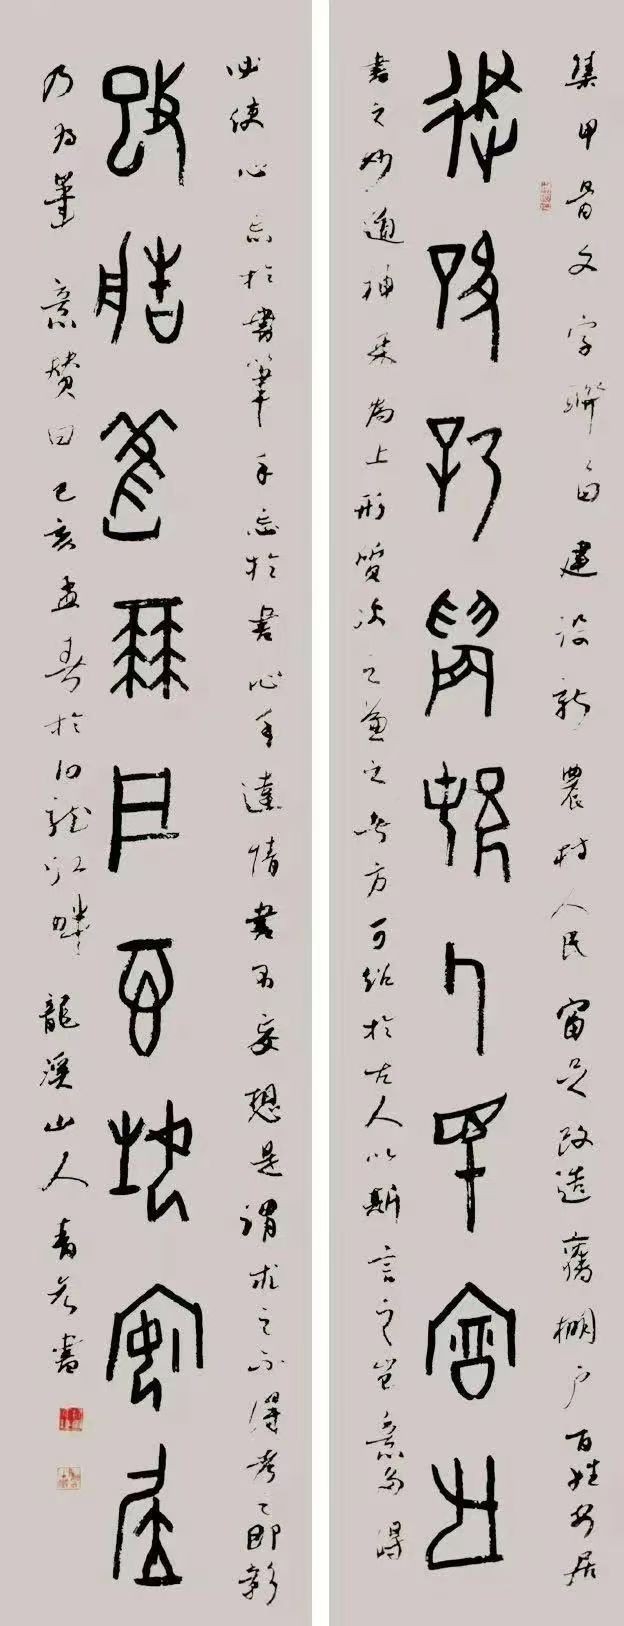 集甲骨文字聯句建設新農村人民富足改造舊棚户百姓安居
建設新農村人民富足
書之妙道神采為上形質次之兼之者方可紹於古人以斯言之豈易多得
必使心忘於書筆手忘於書心手達情書不妄想是謂求之不得考之即彰
改造舊棚户百姓安居
乃為筆意贊曰己亥孟春於白龍江畔龍溪山人書